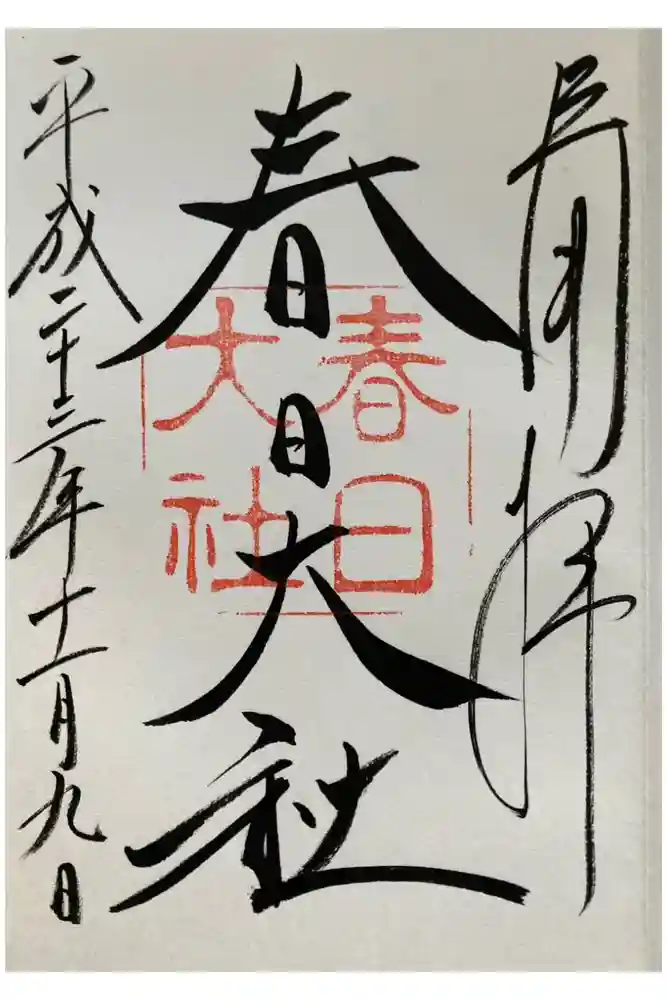 拝
春日大社
春日
大社
平成二十三年十一月九日